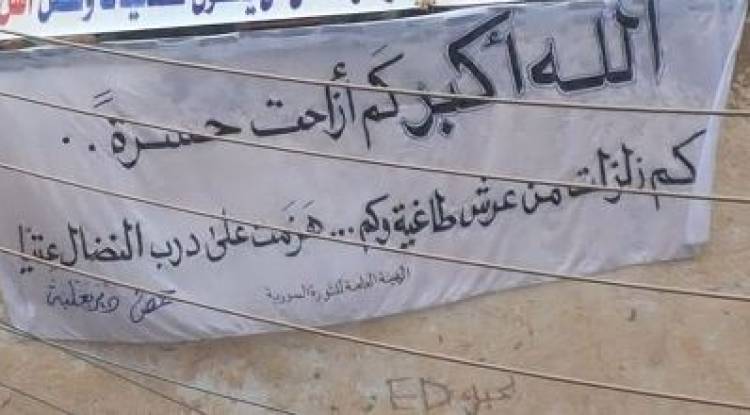 الله أكبر كم أزاحت حسرةً..
كم زلزلت من عرش طاغية وكم... هَزمت على درب النضال عتيا
الهيئة العامة للثورة السورية
حمص ديربعلبة
ED